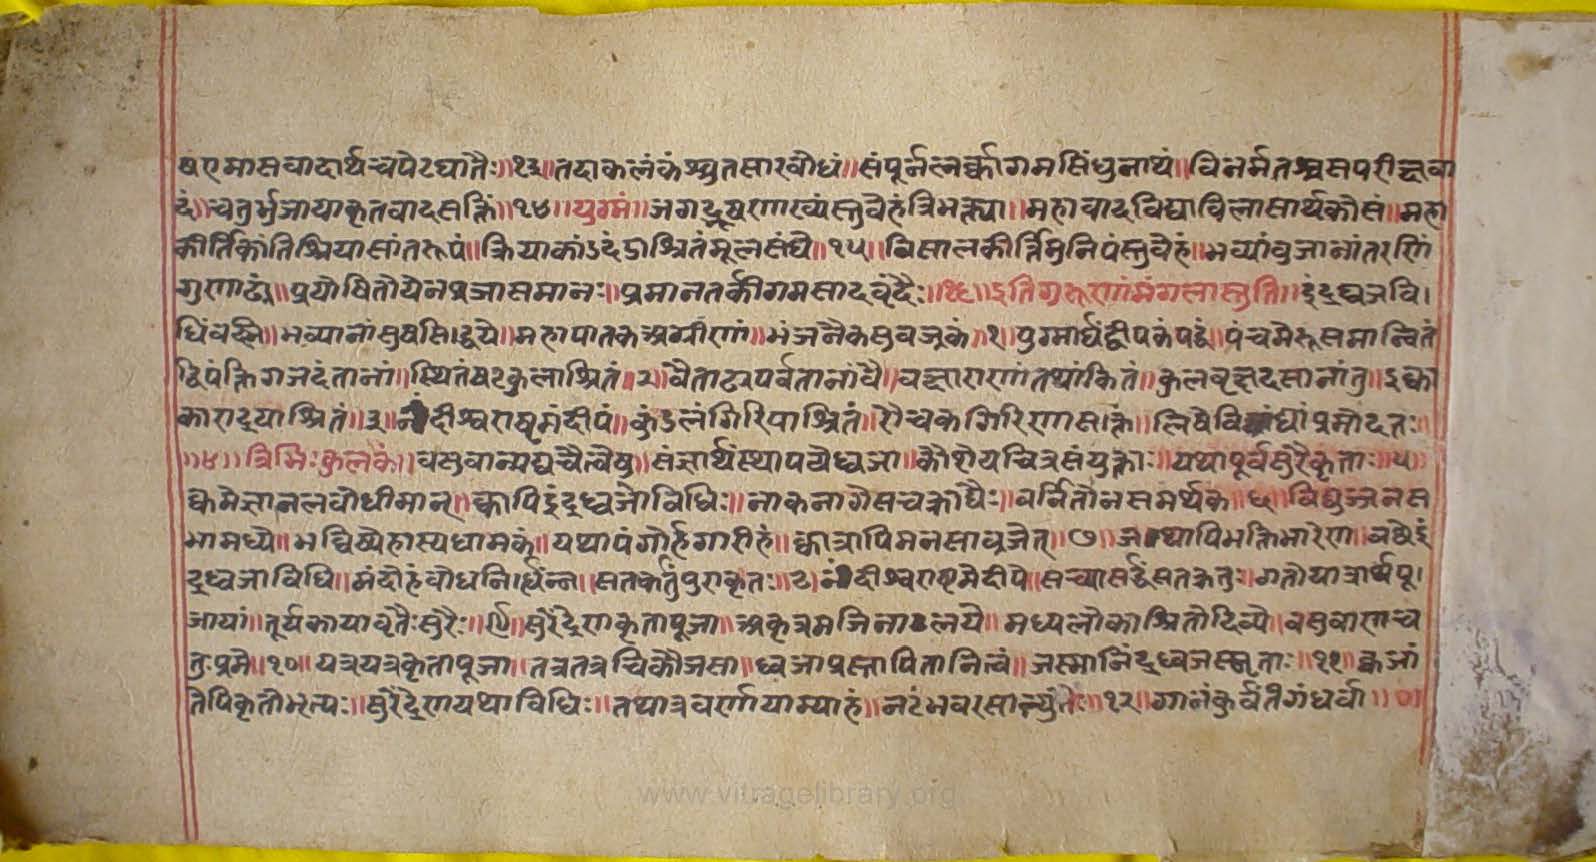 षएमासवादार्थचपेटघातैः॥१३॥तदाकलंकंअ्युतसारवौधं॥संपूर्नत्नर्क्कागमसिंधुनाथं॥विनर्मतश्चसपरीक्ष्यवा
दं॥चतुर्भुजायाकृतवादसक्तिं॥१४॥युग्मं॥जगद्भूषणाख्यंस्तुवैहंत्रिभक्त्या॥महावादविद्याविलासार्थकौसं॥महा
कीर्तिकांतिश्रियासांतरूपं॥क्रियाकांडदंडाश्रितंमूलसंघै॥१५॥विसालकीर्त्तिमुनिपंस्तुवैहं॥भव्यांवुजानांतरणिं
गुणाढ्यं॥प्रयोषितोयेनप्रजासमानः॥प्रमानतर्कागमसादवृंदैः॥१६॥इतिगुरूणांमंगलास्तुति॥इंद्रध्वजवि।
धिंवक्ष्मै॥भव्यानांसुषसिद्धये॥महापातकअग्रीणां॥भंजनैकसुवज्रकं॥१॥युग्मार्धद्वीपकंषद्वं॥पंचमेरूसमान्वितं
द्विपंक्तिगजदंतानां॥स्थितंषटकुलाश्रितं॥२॥वैताढपर्वतानांवै॥वक्षाराणांतथांकितं॥कुलवृक्षदसानांतु॥इक्ष्वा
काराद्याश्रितं॥३॥नंदीश्वराष्टमंदीपं॥कुंडलंगिरिपाश्रितं॥रौचकगिरिणासक्तं॥लिषैविद्यांघांप्रमोदतः॥
॥४॥त्रिभिःकुलकं॥वसुवान्यद्यचैत्यैषु॥संज्ञार्थंस्थापयैध्वजा॥कौशेयचित्रसंयुक्ताः॥यथापूर्वसुरैकृताः॥५॥
क्वमेज्ञानलवोधीमान्॥क्वापिइंद्रध्वजोविधिः॥नाकनागेसचक्राद्यैः॥वर्नितौनसमर्थक॥६॥विद्युज्जनस
भामध्यै॥भविष्यैहास्यधामकं॥यथापंगोर्हगारीहं॥क्वात्रापिमनसाव्रजेत्॥७॥अथापिभक्तिभारेण॥वक्ष्येइं
द्रध्वजाविधि॥मंदोहंवौधनिर्धन्न॥सतर्कर्तुंपुराकृतः॥८॥नंदीश्वराष्टमेदीपे॥सच्यासर्द्धंसतक्रतुः॥गतोयात्रार्थपू।
जायां॥तूर्यकायावृतैःसुरैः॥९॥सुरेंद्रैणकृतापूजा॥अकृत्रमजिनालयै॥मध्यलोकाश्रितोदिव्यै॥वसुवाणच
तुःप्रमे॥१०॥यत्रयत्रकृतापूजा॥तत्रतत्रचिकौजसा॥ध्वजाप्रस्थापितानित्वं॥जस्मानिंद्रध्वजस्मृताः॥११॥क्वजां
तेपिकृतोभृत्यः॥सुरेंद्रैणयथाविधिः॥तथात्रवर्णयाम्याहं॥नटंभवरसान्युतैः॥१२॥गानंकुर्वतिगंधर्वा॥०॥
www.vitragelibrary.org